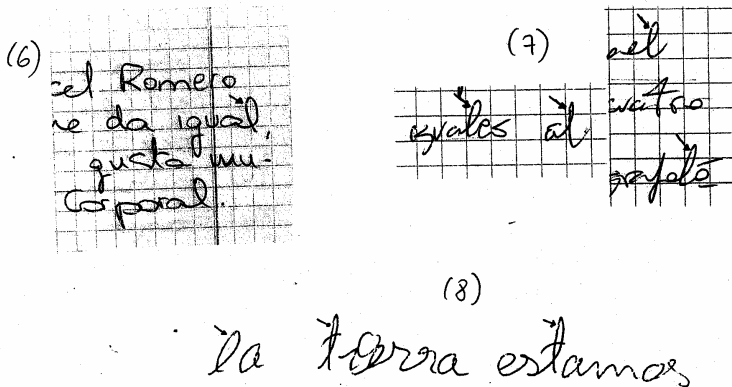 (6)
cel Romero
me da igual,
gusta mu-
Corporal.
(7)
iguales al
nel
cuatro
grafolo
(8)
la tierra estamos